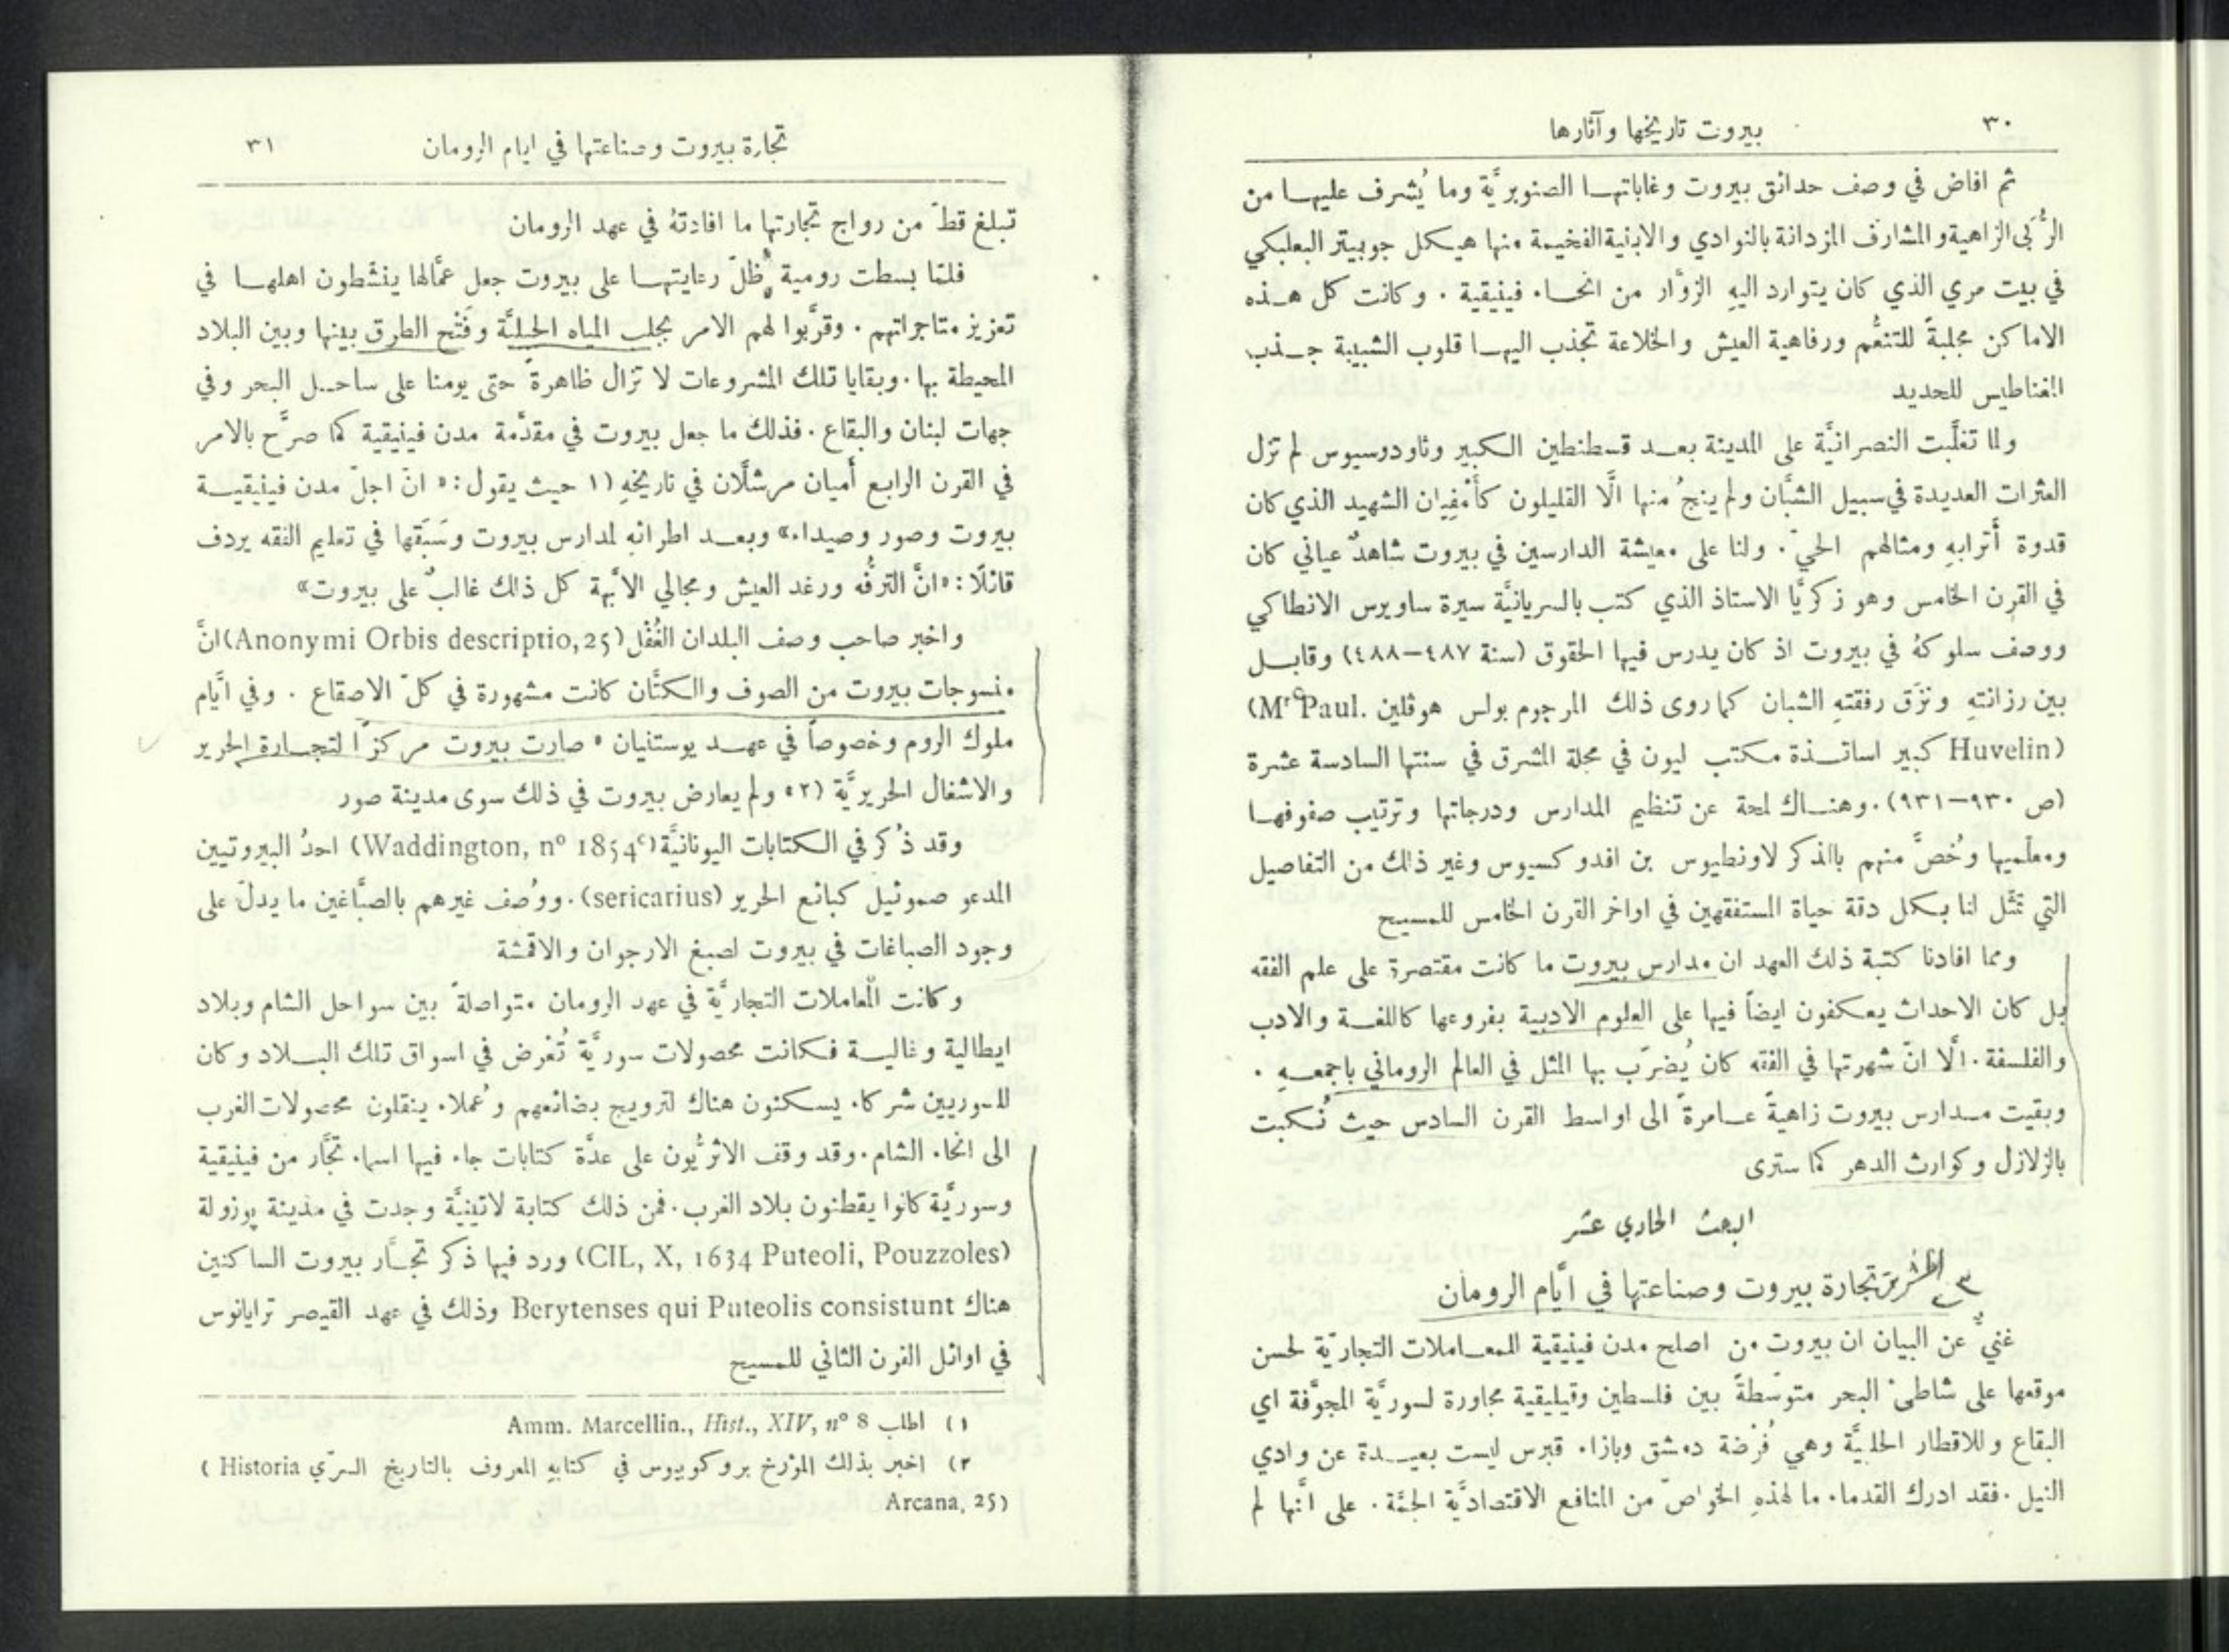 ٣٠ بيروت تاريخها وآثارها
ثم افاض في وصف حدائق بيروت وغاباتهـا الصنوبريَّة وما يُشرف عليهـا من
الرُّبى الزاهية والمشارف المزدانة بالنوادي والابنية الفخيمة منها هيـكل جوبيتر البعلبكي
في بيت مري الذي كان يتوارد اليهِ الزوَّار من انحـاء فينيقية . وكانت كل هـذه
الاماكن مجلبةً للتنعُّم ورفاهية العيش والخلاعة تجذب اليهـا قلوب الشبيبة جـذب
المغناطيس للحديد
ولما تغلَّبت النصرانيَّة على المدينة بعـد قسطنطين الكبير وثاودوسيوس لم تزل
العثرات العديدة في سبيل الشبَّان ولم ينجُ منها الَّا القليلون كأَمْفِيَان الشهيد الذي كان
قدوة أترابهِ ومثالهم الحيّ . ولنا على معيشة الدارسين في بيروت شاهدٌ عياني كان
في القرن الخامس وهو زكريَّا الاستاذ الذي كتب بالسريانيَّة سيرة ساويرس الانطاكي
ووصف سلوكهُ في بيروت اذ كان يدرس فيها الحقوق (سنة ٤٨٧–٤٨٨) وقابـل
بين رزانتهِ ونزَق رفقتهِ الشبان كما روى ذلك المرحوم بولس هوڤلين (Mr Paul.
Huvelin) كبير اساتـذة مكتب ليون في مجلة المشرق في سنتها السادسة عشرة
(ص ٩٣٠–٩٣١). وهنـاك لمحة عن تنظيم المدارس ودرجاتها وترتيب صفوفهـا
ومعلّميها وخُصَّ منهم بالذكر لاونطيوس بن افدوكسيوس وغير ذلك من التفاصيل
التي تمثّل لنا بكل دقة حياة المستفقهين في اواخر القرن الخامس للمسيح
ومما افادنا كتبة ذلك العهد ان مدارس بيروت ما كانت مقتصرة على علم الفقه
بل كان الاحداث يعكفون ايضاً فيها على العلوم الادبية بفروعها كاللغـة والادب
والفلسفة . الَّا انّ شهرتها في الفقه كان يُضرَب بها المثل في العالم الروماني باجمعـهِ .
وبقيت مـدارس بيروت زاهيةً عـامرةً الى اواسط القرن السادس حيث نُكبت
بالزلازل وكوارث الدهر كما سترى
البحث الحادي عشر
تجارة بيروت وصناعتها في ايَّام الرومان
غنيٌّ عن البيان ان بيروت من اصلح مدن فينيقية للمعـاملات التجاريّة لحسن
موقعها على شاطئ البحر متوسّطةً بين فلسطين وقيليقية مجاورة لسوريَّة المجوَّفة اي
البقاع وللاقطار الحلبيَّة وهي فُرْضة دمشق وبازاء قبرس ليست بعيـدة عن وادي
النيل . فقد ادرك القدماء ما لهذهِ الخواصّ من المنافع الاقتصاديَّة الجمَّة . على انَّها لم
تجارة بيروت وصناعتها في ايام الرومان ٣١
تبلغ قطّ من رواج تجارتها ما افادتهُ في عهد الرومان
فلمّا بسطت رومية ظلّ رعايتهـا على بيروت جعل عمَّالها ينشّطون اهلهـا في
تعزيز متاجراتهم . وقرَّبوا لهم الامر بجلب المياه الجبليَّة وفَتْح الطرق بينها وبين البلاد
المحيطة بها . وبقايا تلك المشروعات لا تزال ظاهرة حتى يومنا على ساحـل البحر وفي
جهات لبنان والبقاع . فذلك ما جعل بيروت في مقدّمة مدن فينيقية كما صرَّح بالامر
في القرن الرابع أميان مرشلَّان في تاريخهِ (١ حيث يقول : « انّ اجلّ مدن فينيقيـة
بيروت وصور وصيداء» وبعـد اطرائهِ لمدارس بيروت وسَبَقها في تعليم الفقه يردف
قائلًا : «انَّ الترفُّه ورغد العيش ومجالي الابَّهة كل ذلك غالبٌ على بيروت»
واخبر صاحب وصف البلدان الغُفْل (Anonymi Orbis descriptio, 25) انَّ
منسوجات بيروت من الصوف والكتَّان كانت مشهورة في كلّ الاصقاع . وفي ايَّام
ملوك الروم وخصوصاً في عهـد يوستنيان « صارت بيروت مركزًا لتجـارة الحرير
والاشغال الحريريَّة (٢» ولم يعارض بيروت في ذلك سوى مدينة صور
وقد ذُكر في الكتابات اليونانيَّة (Waddington, nº 1854c) احدُ البيروتيين
المدعو صموئيل كبائع الحرير (sericarius) . ووُصف غيرهم بالصبَّاغين ما يدلّ على
وجود الصباغات في بيروت لصبغ الارجوان والاقمشة
وكانت المعاملات التجاريَّة في عهد الرومان متواصلةً بين سواحل الشام وبلاد
ايطالية وغاليـة فكانت محصولات سوريَّة تُعْرض في اسواق تلك البـلاد وكان
للسوريين شركاء يسكنون هناك لترويج بضائعهم وعُملاء ينقلون محصولات الغرب
الى انحاء الشام . وقد وقف الاثريُّون على عدَّة كتابات جاء فيها اسماء تجَّار من فينيقية
وسوريَّة كانوا يقطنون بلاد الغرب . فمن ذلك كتابة لاتينيَّة وجدت في مدينة پوزولة
(CIL, X, 1634 Puteoli, Pouzzoles) ورد فيها ذكر تجـَّار بيروت الساكنين
هناك Berytenses qui Puteolis consistunt وذلك في عهد القيصر ترايانوس
في اوائل القرن الثاني للمسيح
١) اطلب Amm. Marcellin., Hist., XIV, nº 8
٢) اخبر بذلك المؤرخ بروكوپيوس في كتابهِ المعروف بالتاريخ السرّي (Historia
Arcana, 25)